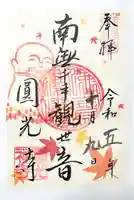 奉拝
令和五年
十一月九日
南無千手観世音
圓光寺